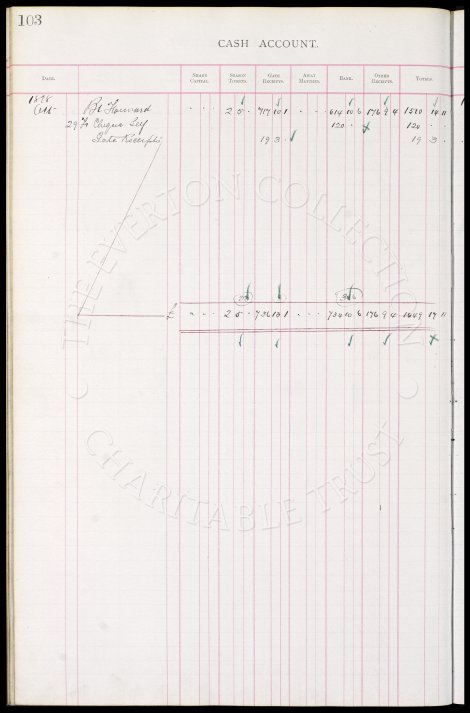 103
CASH ACCOUNT.
DATE. SHARE CAPITAL. SEASON TICKETS. GATE RECEIPTS. AWAY MATCHES. BANK. OTHER RECEIPTS. TOTALS.
1898
Oct Bt Forward 2 5 - 717 10 1 614 10 6 176 9 4 1510 14 11
29 Fr Cheque Self 120 - - 120 - -
Gate Receipts 19 3 - 19 3 -
2 5 - 736 13 1 734 10 6 176 9 4 1649 17 11
THE EVERTON COLLECTION
CHARITABLE TRUST